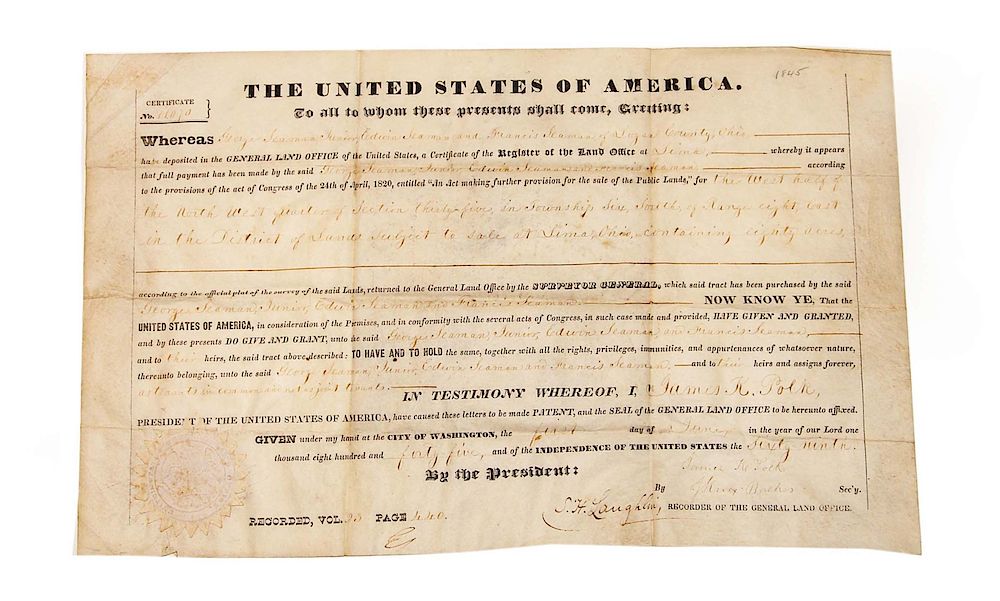 1845
THE UNITED STATES OF AMERICA.
To all to whom these presents shall come, Greeting:
CERTIFICATE
No.
Whereas George Seaman, Junior, Edwin Seaman and Francis Seaman of Logan County, Ohio
have deposited in the GENERAL LAND OFFICE of the United States, a Certificate of the Register of the Land Office at Lima, whereby it appears
that full payment has been made by the said George Seaman, Junior, Edwin Seaman and Francis Seaman according
to the provisions of the act of Congress of the 24th of April, 1820, entitled "An Act making further provision for the sale of the Public Lands," for the West half of
the North West quarter of Section thirty-five, in Township Six, South, of Range eight East
in the District of Lands subject to sale at Lima, Ohio, containing eighty acres,
according to the official plat of the survey of the said Lands, returned to the General Land Office by the SURVEYOR GENERAL, which said tract has been purchased by the said
George Seaman, Junior, Edwin Seaman and Francis Seaman NOW KNOW YE, That the
UNITED STATES OF AMERICA, in consideration of the Premises, and in conformity with the several acts of Congress, in such case made and provided, HAVE GIVEN AND GRANTED,
and by these presents DO GIVE AND GRANT, unto the said George Seaman, Junior, Edwin Seaman and Francis Seaman,
and to their heirs, the said tract above described: TO HAVE AND TO HOLD the same, together with all the rights, privileges, immunities, and appurtenances of whatsoever nature,
thereunto belonging, unto the said George Seaman, Junior, Edwin Seaman and Francis Seaman, and to their heirs and assigns forever,
as tenants in common and not as joint tenants.
IN TESTIMONY WHEREOF, I, James K. Polk,
PRESIDENT OF THE UNITED STATES OF AMERICA, have caused these letters to be made PATENT, and the SEAL of the GENERAL LAND OFFICE to be hereunto affixed.
GIVEN under my hand at the CITY OF WASHINGTON, the first day of June, in the year of our Lord one
thousand eight hundred and forty five, and of the INDEPENDENCE OF THE UNITED STATES the Sixty ninth.
By the President: James K. Polk
By J Knox Walker Sec'y.
S. H. Laughlin, RECORDER OF THE GENERAL LAND OFFICE.
RECORDED, VOL. 23 PAGE